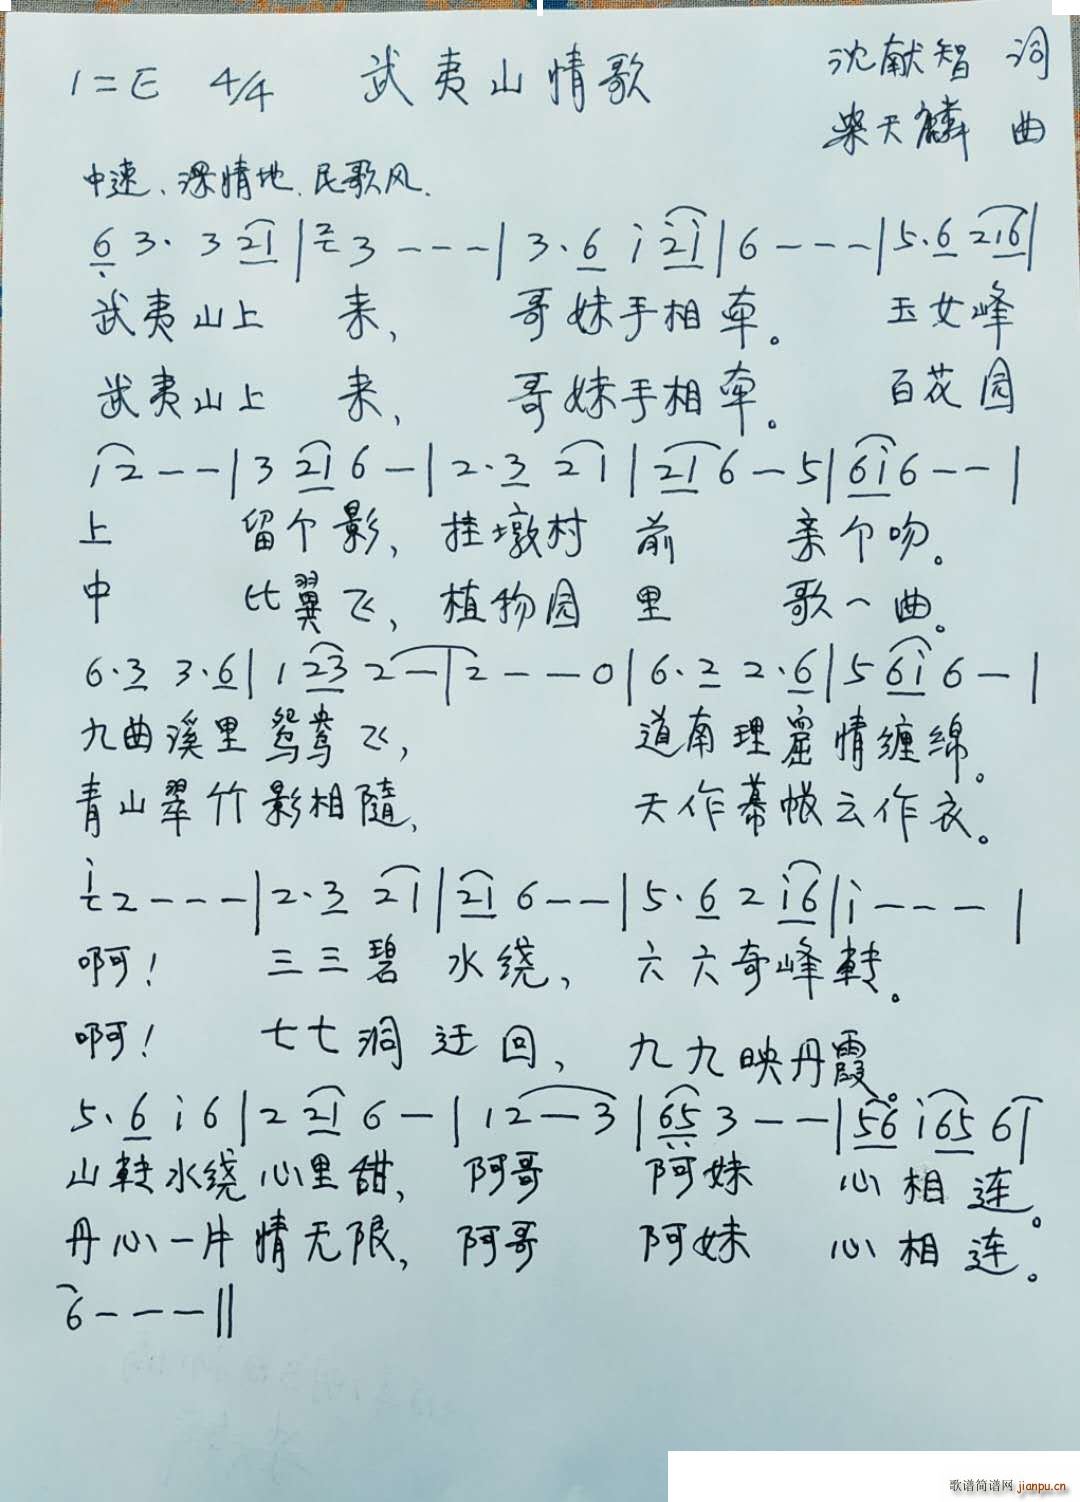 1=E 4/4 武夷山情歌 沈献智 词
柴天麟 曲
中速、深情地、民歌风.
6 3· 3 21 | 2 3 - - - | 3·6 i 2i | 6 - - - | 5·6 216 |
武夷山上 来, 哥妹手相牵。 玉女峰
武夷山上 来, 哥妹手相牵。 百花园
12 - - | 3 21 6 - | 2·3 21 | 21 6 - 5 | 6i 6 - - |
上 留个影, 挂墩村 前 亲个吻。
中 比翼飞, 植物园 里 歌一曲。
6·3 3·6 | 1 23 2 - | 2 - - - 0 | 6·2 2·6 | 5 6i 6 - |
九曲溪里鸳鸯飞, 道南理窟情缠绵。
青山翠竹影相随, 天作幕帐云作衣。
i 2 - - - | 2·3 21 | 21 6 - - | 5·6 2 i6 | i - - - |
啊! 三三碧 水绕, 六六奇峰转。
啊! 七七洞 迂回, 九九映丹霞。
5·6 i 6 | 2 21 6 - | 12 - 3 | 65 3 - - | 56 i65 6 |
山转水绕心里甜, 阿哥 阿妹 心相连。
丹心一片情无限, 阿哥 阿妹 心相连。
6 - - - ‖
歌谱简谱网 jianpu.cn